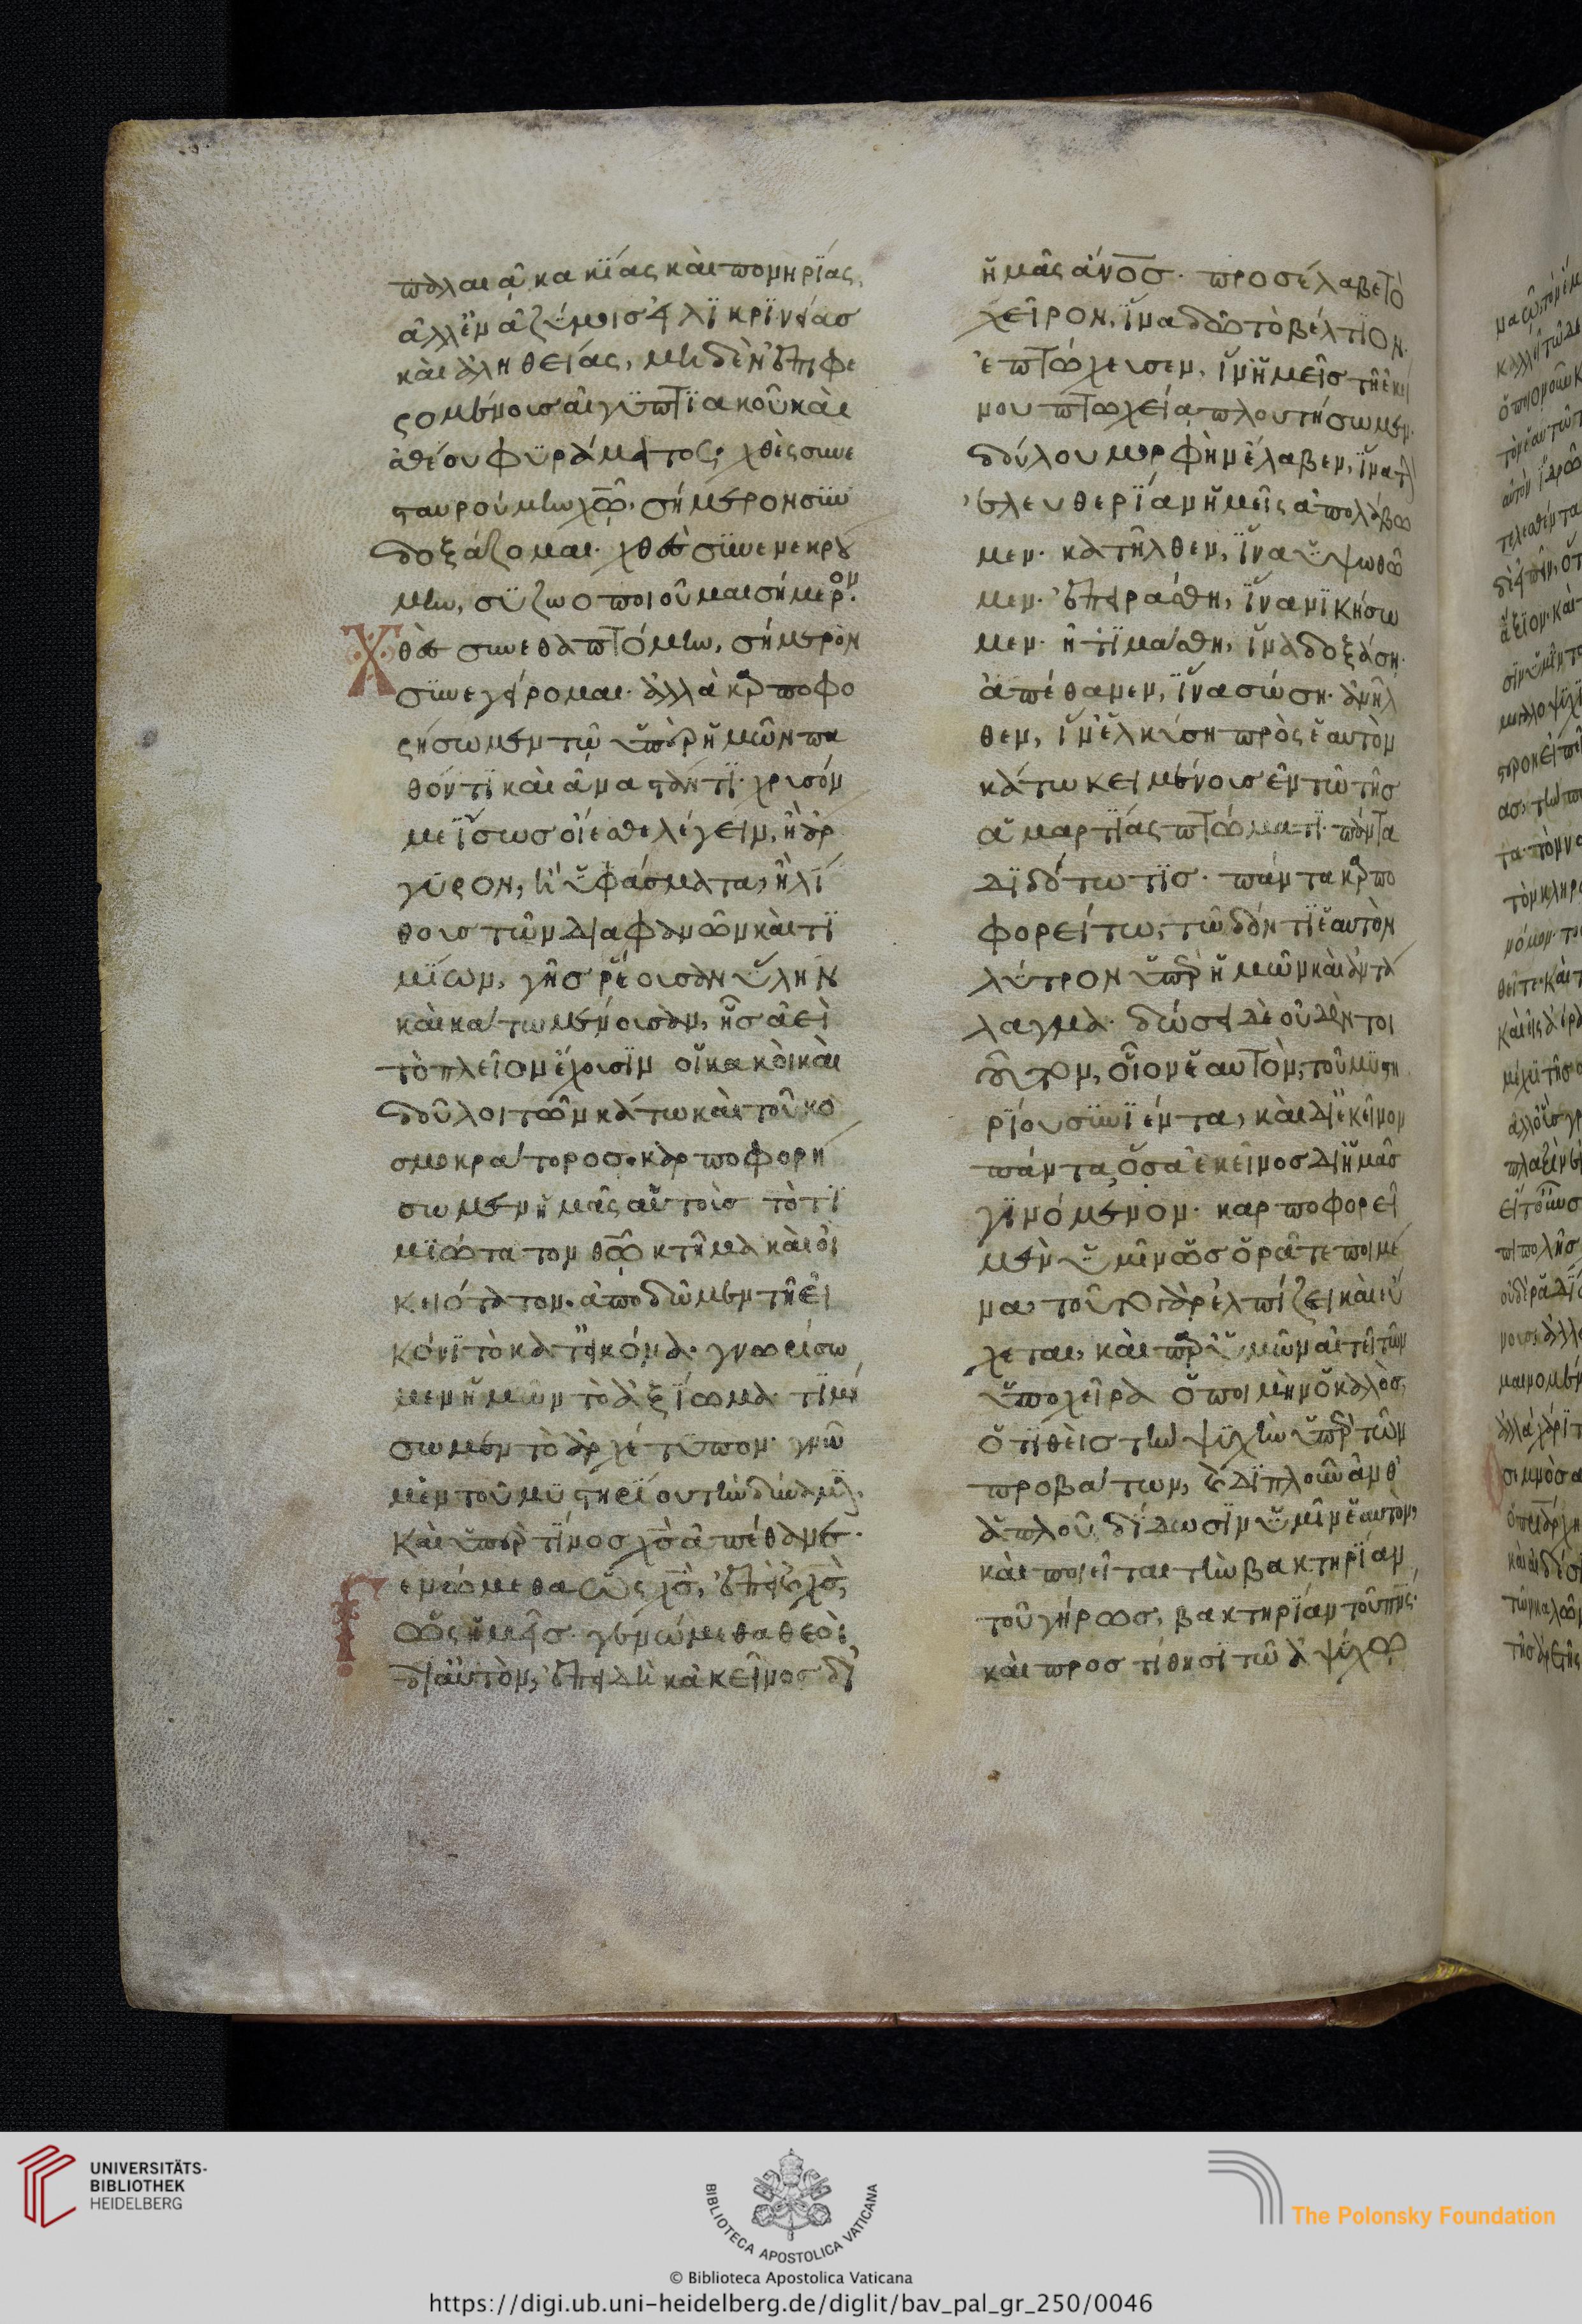 παλαιᾷ κακίας καὶ πονηρίας,
ἀλλ' ἐν ἀζύμοις εἰλικρινείας
καὶ ἀληθείας, μηδὲν ἐπιφε
ρομένοις αἰγυπτιακοῦ καὶ
ἀθέου φυράματος· χθὲς συνε
σταυρούμην χῶ, σήμερον συν
δοξάζομαι· χθὲς συνενεκρού
μην, συζωοποιοῦμαι σήμερον·
Χθὲς συνεθαπτόμην, σήμερον
συνεγείρομαι· ἀλλὰ καρποφο
ρήσωμεν τῷ ὑπὲρ ἡμῶν πα
θόντι καὶ ἀναστάντι· χρυσόν
με ἴσως οἴεσθε λέγειν, ἢ ἄρ
γυρον, ἢ ὑφάσματα, ἢ λί
θους τῶν διαφανῶν καὶ τι
μίων, γῆς ῥέουσαν ὕλην
καὶ κάτω μένουσαν, ἧς ἀεὶ
τὸ πλεῖον ἔχουσιν οἱ κακοὶ καὶ
δοῦλοι τῶν κάτω καὶ τοῦ κο
σμοκράτορος· καρποφορή
σωμεν ἡμᾶς αὐτοὺς τὸ τι
μιώτατον θῶ κτῆμα καὶ οἰ
κειότατον· ἀποδῶμεν τῇ εἰ
κόνι τὸ κατ' εἰκόνα· γνωρίσω
μεν ἡμῶν τὸ ἀξίωμα· τιμή
σωμεν τὸ ἀρχέτυπον· γνῶ
μεν τοῦ μυστηρίου τὴν δύναμιν·
καὶ ὑπὲρ τίνος χς ἀπέθανε·
Γενώμεθα ὡς χς, ἐπεὶ καὶ χς,
ὡς ἡμεῖς· γενώμεθα θεοὶ
δι' αὐτὸν, ἐπειδὴ κἀκεῖνος δι'
ἡμᾶς ἄνος· προσέλαβε τὸ
χεῖρον, ἵνα δῶ τὸ βέλτιον·
ἐπτώχευσεν, ἵν' ἡμεῖς τῇ ἐκεί
νου πτωχείᾳ πλουτήσωμεν·
δούλου μορφὴν ἔλαβεν, ἵνα τὴν
ἐλευθερίαν ἡμεῖς ἀπολάβω
μεν· κατῆλθεν, ἵνα ὑψωθῶ
μεν· ἐπειράσθη, ἵνα νικήσω
μεν· ἠτιμάσθη, ἵνα δοξάσῃ·
ἀπέθανεν, ἵνα σώσῃ· ἀνῆλ
θεν, ἵν' ἑλκύσῃ πρὸς ἑαυτὸν
κάτω κειμένους ἐν τῷ τῆς
ἁμαρτίας πτώματι· πάντα
διδότω τίς· πάντα καρπο
φορείτω, τῷ δόντι ἑαυτὸν
λύτρον ὑπὲρ ἡμῶν καὶ ἀντά
λαγμα· δώσει δὲ οὐδὲν τοι
οῦτον, οἷον ἑαυτὸν, τοῦ μυστη
ρίου συνιέντα, καὶ δι' ἐκεῖνον
πάντα ὅσα ἐκεῖνος δι' ἡμᾶς
γινόμενον· καρποφορεῖ
μὲν ὑμῖν ὡς ὁρᾶτε ποιμέ
να· τοῦτο γὰρ ἐλπίζει καὶ εὔ
χεται, καὶ παρ' ὑμῶν αἰτεῖ τῶν
ὑπὸ χεῖρα ὁ ποιμὴν ὁ καλὸς,
ὁ τιθεὶς τὴν ψυχὴν ὑπὲρ τῶν
προβάτων, καὶ διπλοῦν ἀνθ'
ἁπλοῦ δίδωσιν ὑμῖν ἑαυτὸν,
καὶ ποιεῖται τὴν βακτηρίαν
τοῦ γήρως, βακτηρίαν τοῦ πνς·
καὶ προστίθησι τῷ ἀψύχῳ
UNIVERSITÄTS-
BIBLIOTHEK
HEIDELBERG
BIBLIOTECA APOSTOLICA VATICANA
The Polonsky Foundation
© Biblioteca Apostolica Vaticana
https://digi.ub.uni-heidelberg.de/diglit/bav_pal_gr_250/0046